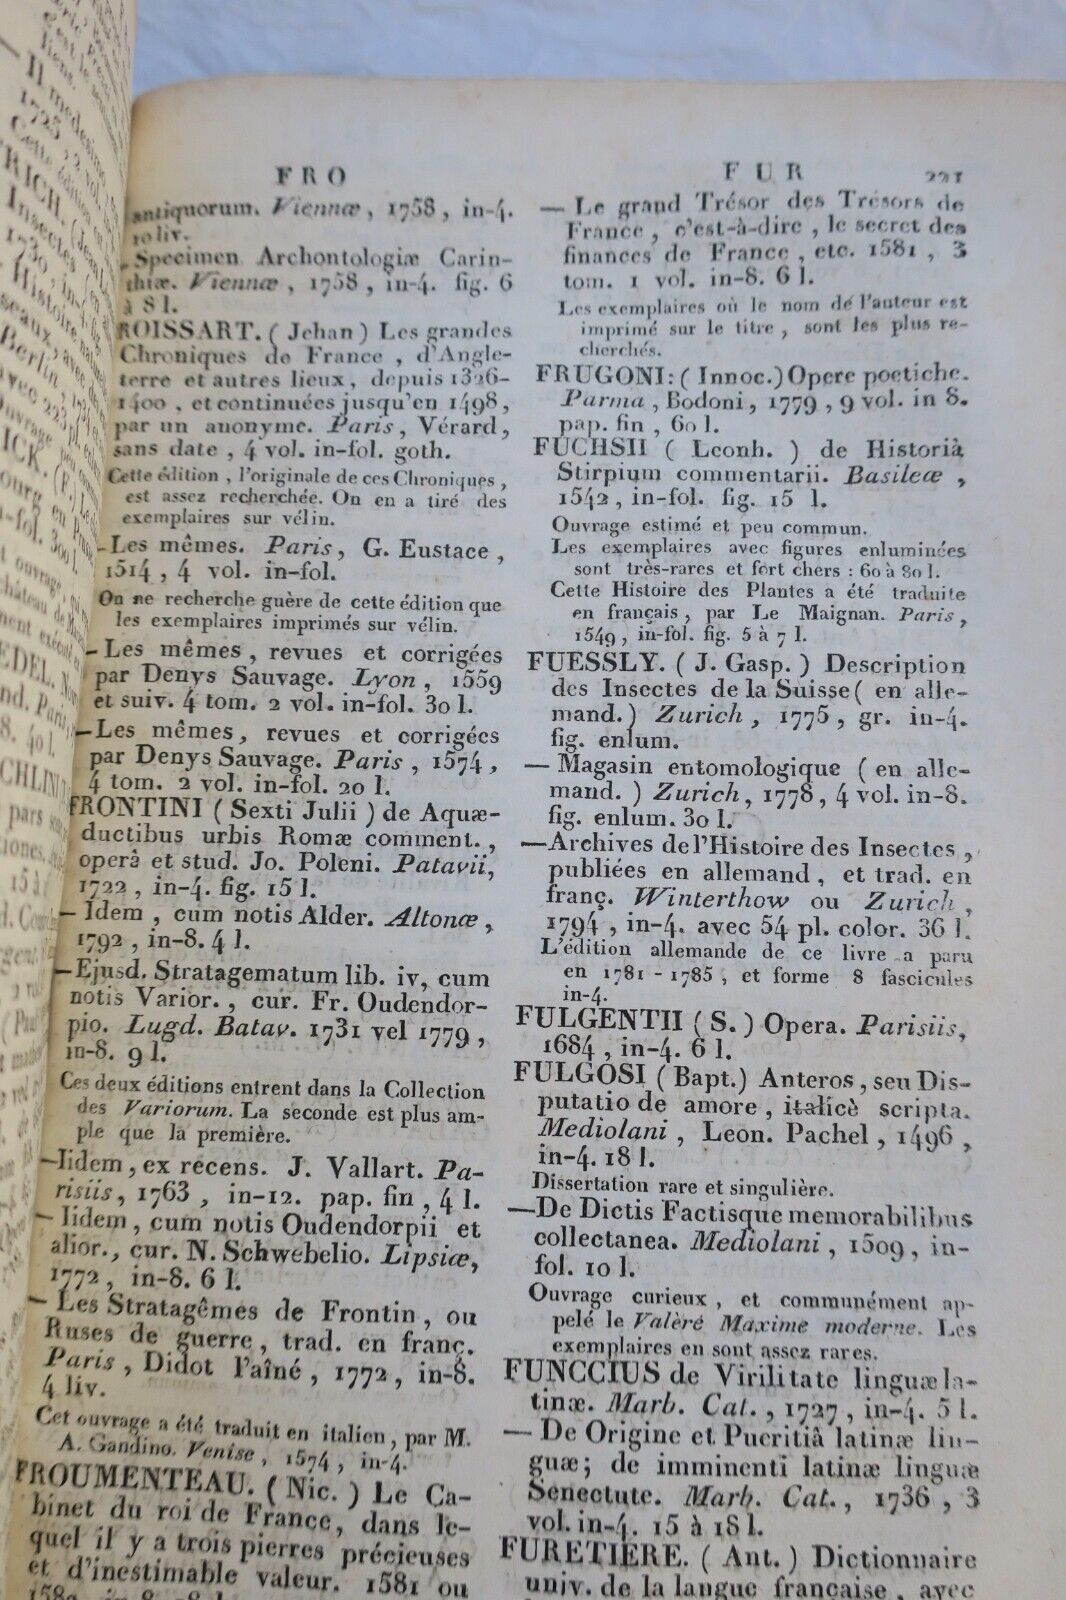 FRO
antiquorum. Viennæ, 1758, in-4.
10 liv.
Specimen Archontologiæ Carin-
thiæ. Viennæ, 1758, in-4. fig. 6
à 8 l.
ROISSART. (Jehan) Les grandes
Chroniques de France, d'Angle-
terre et autres lieux, depuis 1326-
1400, et continuées jusqu'en 1498,
par un anonyme. Paris, Vérard,
sans date, 4 vol. in-fol. goth.
Cette édition, l'originale de ces Chroniques,
est assez recherchée. On en a tiré des
exemplaires sur vélin.
- Les mêmes. Paris, G. Eustace,
1514, 4 vol. in-fol.
On ne recherche guère de cette édition que
les exemplaires imprimés sur vélin.
- Les mêmes, revues et corrigées
par Denys Sauvage. Lyon, 1559
et suiv. 4 tom. 2 vol. in-fol. 30 l.
-Les mêmes, revues et corrigées
par Denys Sauvage. Paris, 1574,
4 tom. 2 vol. in-fol. 20 l.
FRONTINI (Sexti Julii) de Aquæ-
ductibus urbis Romæ comment.,
operâ et stud. Jo. Poleni. Patavii,
1722, in-4. fig. 15 l.
— Idem, cum notis Alder. Altonæ,
1792, in-8. 4 l.
—Ejusd. Stratagematum lib. iv, cum
notis Varior., cur. Fr. Oudendor-
pio. Lugd. Batav. 1731 vel 1779,
in-8. 9 l.
Ces deux éditions entrent dans la Collection
des Variorum. La seconde est plus am-
ple que la première.
—Iidem, ex recens. J. Vallart. Pa-
risiis, 1763, in-12. pap. fin, 4 l.
— Iidem, cum notis Oudendorpii et
alior., cur. N. Schwebelio. Lipsiæ,
1772, in-8. 6 l.
— Les Stratagêmes de Frontin, ou
Ruses de guerre, trad. en franç.
Paris, Didot l'aîné, 1772, in-8.
4 liv.
Cet ouvrage a été traduit en italien, par M.
A. Gandino. Venise, 1574, in-4.
FROUMENTEAU. (Nic.) Le Ca-
binet du roi de France, dans le-
quel il y a trois pierres précieuses
et d'inestimable valeur. 1581 ou
FUR 221
— Le grand Trésor des Trésors de
France, c'est-à-dire, le secret des
finances de France, etc. 1581, 3
tom. 1 vol. in-8. 6 l.
Les exemplaires où le nom de l'auteur est
imprimé sur le titre, sont les plus re-
cherchés.
FRUGONI: (Innoc.) Opere poetiche.
Parma, Bodoni, 1779, 9 vol. in 8.
pap. fin, 60 l.
FUCHSII (Leonh.) de Historiâ
Stirpium commentarii. Basileæ,
1542, in-fol. fig. 15 l.
Ouvrage estimé et peu commun.
Les exemplaires avec figures enluminées
sont très-rares et fort chers : 60 à 80 l.
Cette Histoire des Plantes a été traduite
en français, par Le Maignan. Paris,
1549, in-fol. fig. 5 à 7 l.
FUESSLY. (J. Gasp.) Description
des Insectes de la Suisse (en alle-
mand.) Zurich, 1775, gr. in-4.
fig. enlum.
— Magasin entomologique (en alle-
mand.) Zurich, 1778, 4 vol. in-8.
fig. enlum. 30 l.
—Archives de l'Histoire des Insectes,
publiées en allemand, et trad. en
franç. Winterthow ou Zurich,
1794, in-4. avec 54 pl. color. 36 l.
L'édition allemande de ce livre a paru
en 1781-1785, et forme 8 fascicules
in-4.
FULGENTII (S.) Opera. Parisiis,
1684, in-4. 6 l.
FULGOSI (Bapt.) Anteros, seu Dis-
putatio de amore, italicè scripta.
Mediolani, Leon. Pachel, 1496,
in-4. 18 l.
Dissertation rare et singulière.
—De Dictis Factisque memorabilibus
collectanea. Mediolani, 1509, in-
fol. 10 l.
Ouvrage curieux, et communément ap-
pelé le Valère Maxime moderne. Les
exemplaires en sont assez rares.
FUNCCIUS de Virilitate linguæ la-
tinæ. Marb. Cat., 1727, in-4. 5 l.
— De Origine et Pueritiâ latinæ lin-
guæ; de imminenti latinæ linguæ
Senectute. Marb. Cat., 1736, 3
vol. in-4. 15 à 18 l.
FURETIÈRE. (Ant.) Dictionnaire
univ. de la langue française, avec